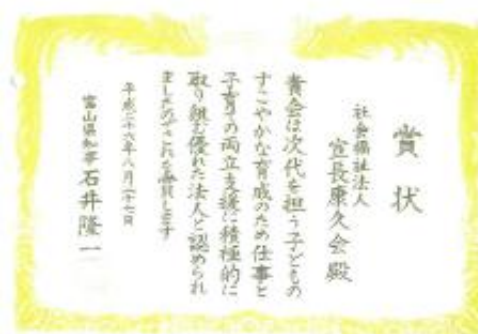 賞状
社会福祉法人
宣長康久会殿
貴会は次代を担う子どもの
すこやかな育成のため仕事と
子育ての両立支援に積極的に
取り組む優れた法人と認められ
ましたのでこれを賞します
平成二十六年八月二十七日
富山県知事 石井隆一